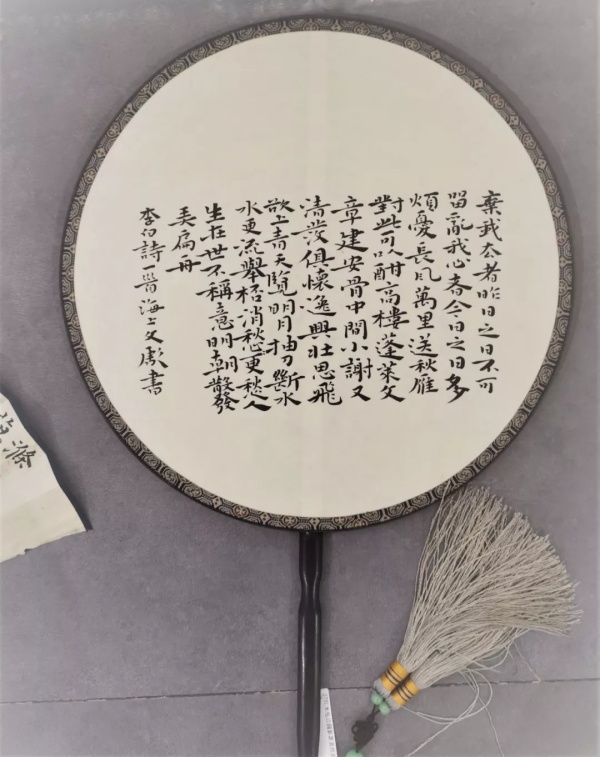 棄我去者昨日之日不可
留亂我心者今日之日多
煩憂長風萬里送秋雁
對此可以酣高樓蓬萊文
章建安骨中間小謝又
清發俱懷逸興壯思飛
欲上青天覽明月抽刀斷水
水更流舉桮消愁更愁人
生在世不稱意明朝散發
弄扁舟
李白詩一首海上文獻書
滌